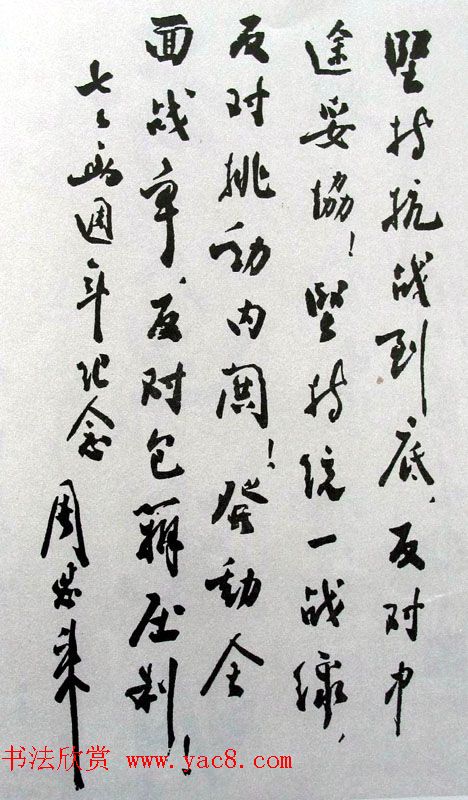 堅持抗战到底，反对中
途妥協！堅持统一战線，
反对挑动内閧！發動全
面战争，反对包辦压制！
七七两週年纪念 周恩来
书法欣赏 www.yac8.com